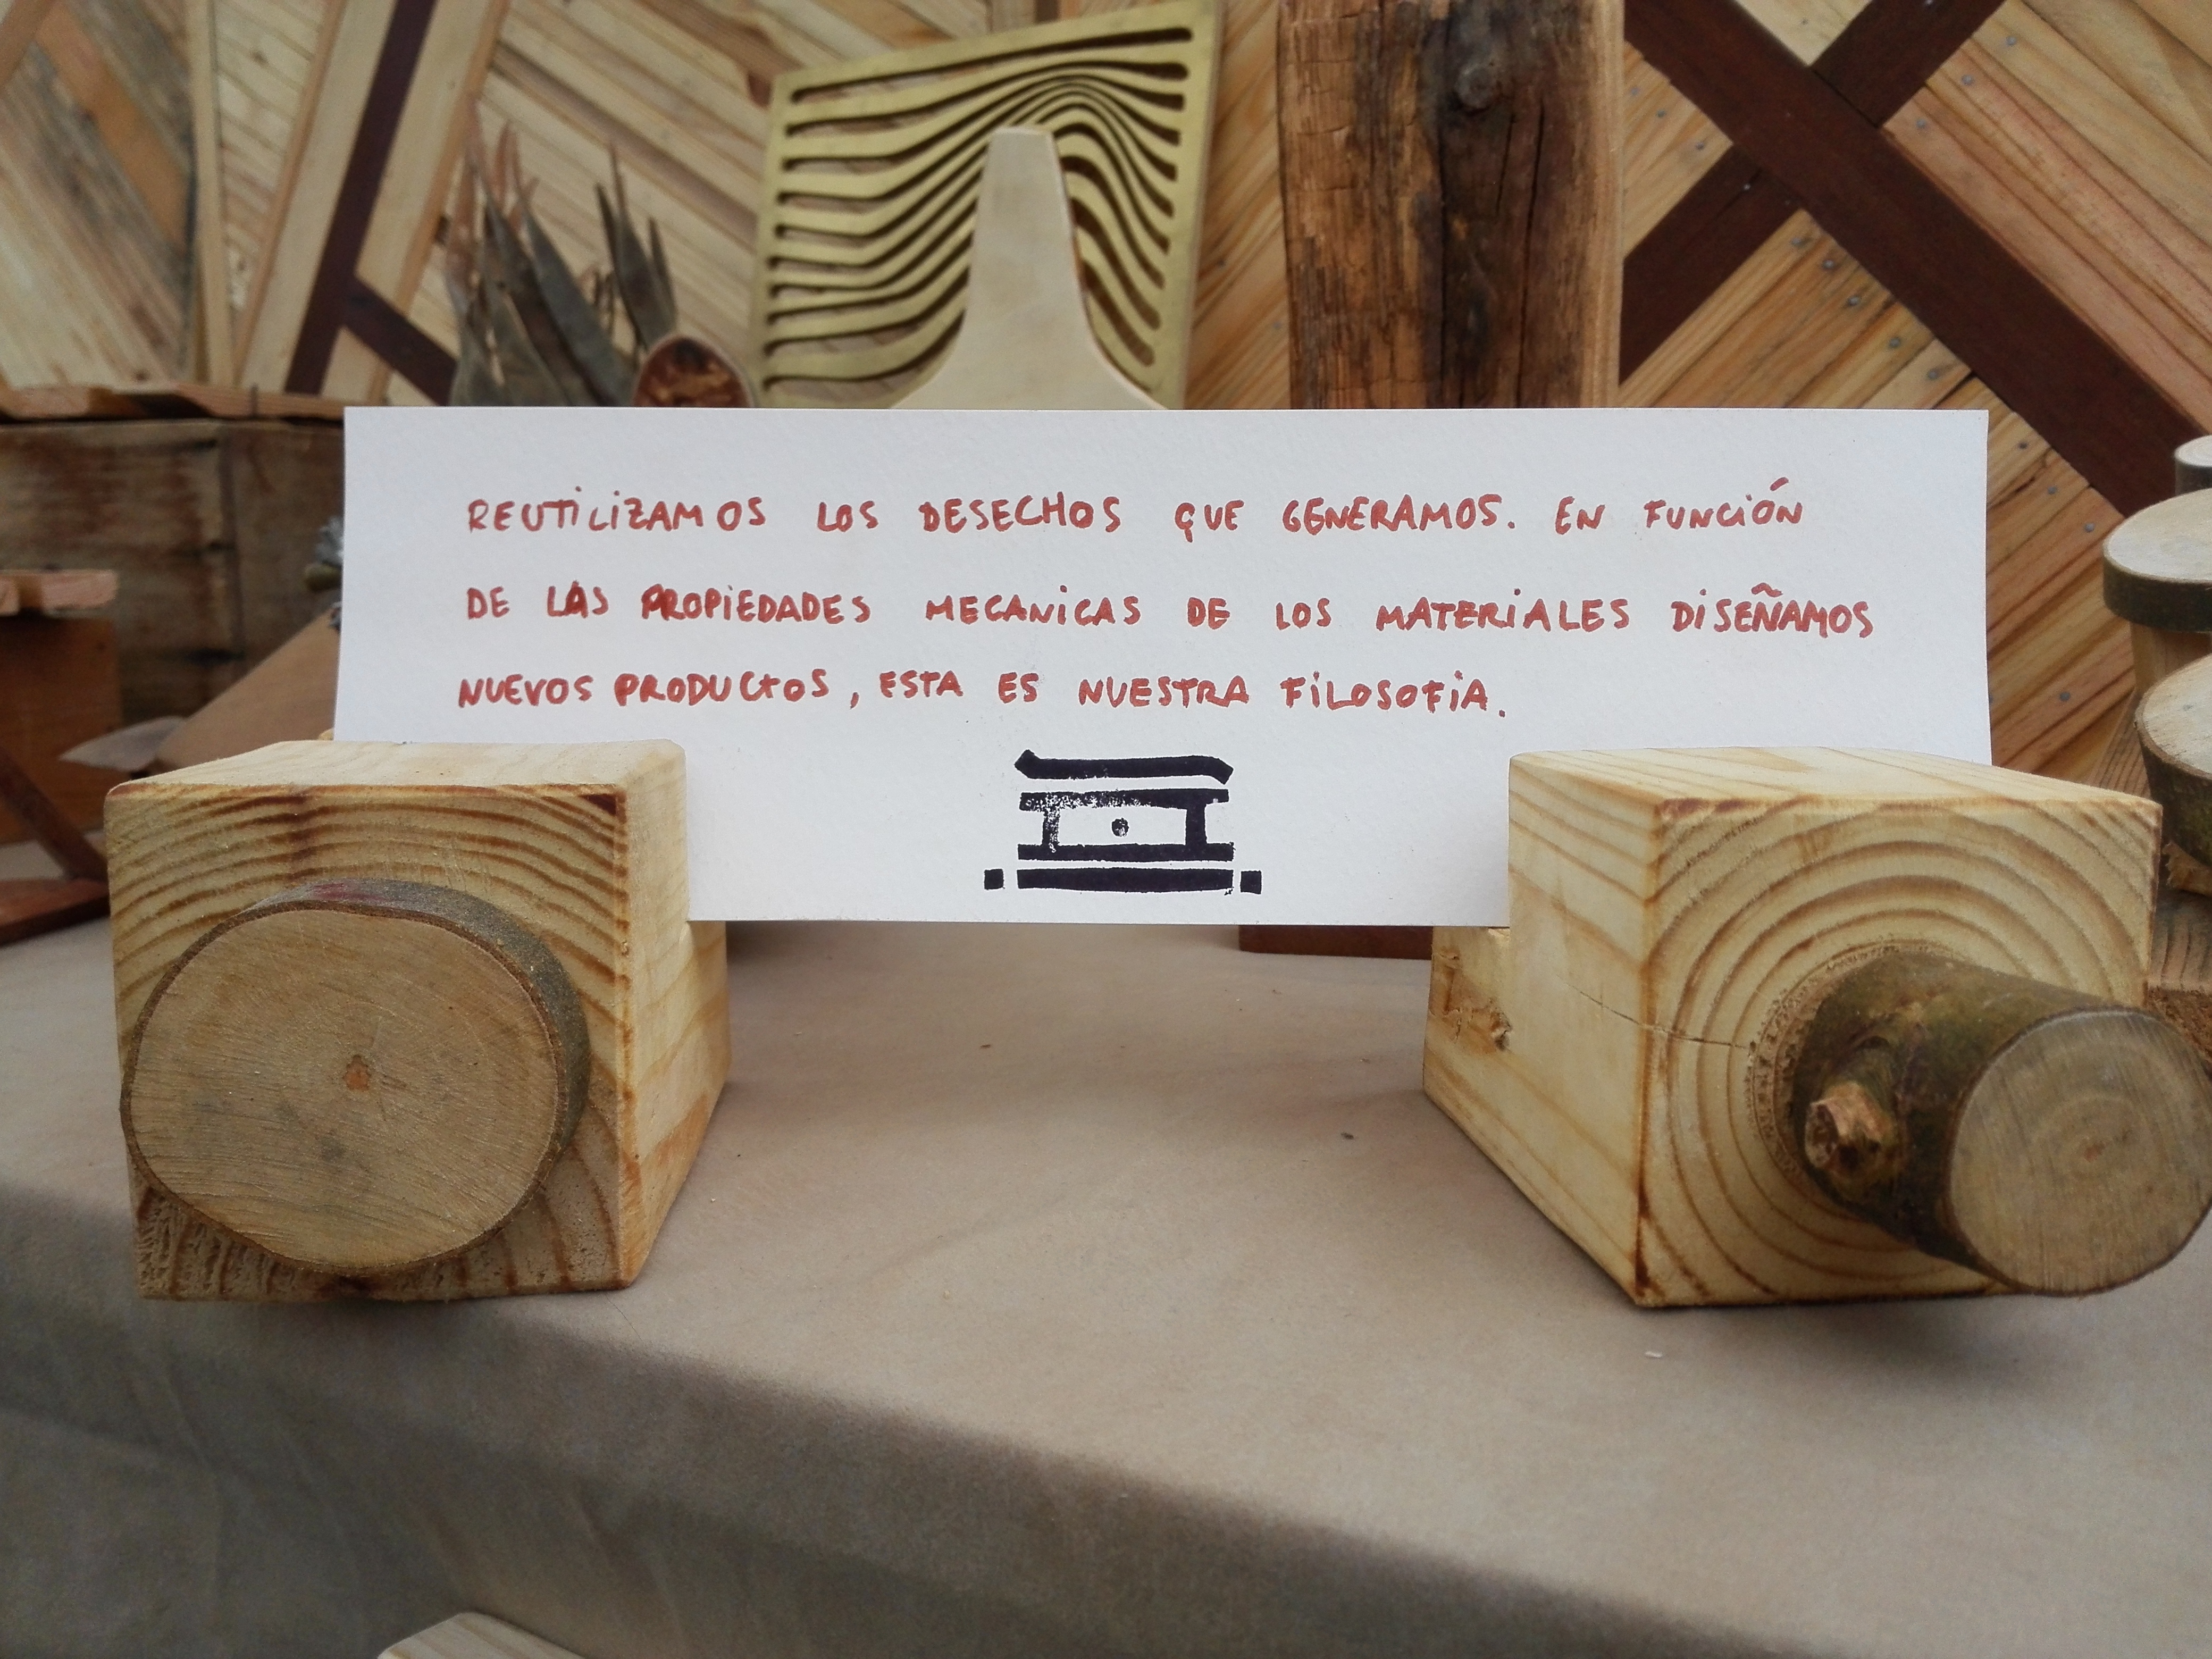 REUTILIZAMOS LOS DESECHOS QUE GENERAMOS. EN FUNCIÓN
DE LAS PROPIEDADES MECANICAS DE LOS MATERIALES DISEÑAMOS
NUEVOS PRODUCTOS, ESTA ES NUESTRA FILOSOFIA.